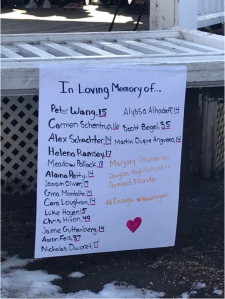 In Loving Memory of...
Peter Wang, 15
Alyssa Alhadeff, 14
Carmen Schentrup, 16
Scott Beigel, 35
Alex Schachter, 14
Martin Duque Anguiano, 14
Helena Ramsay, 17
Meadow Pollack, 18
Alaina Petty, 14
Joaquin Oliver, 17
Gina Montalto, 14
Cara Loughran, 14
Luke Hoyer, 15
Chris Hixon, 49
Jaime Guttenberg, 14
Aaron Feis, 37
Nicholas Dworet, 17
Marjory Stoneman
Douglas High School
Parkland, Florida
#Enough #Neveragain